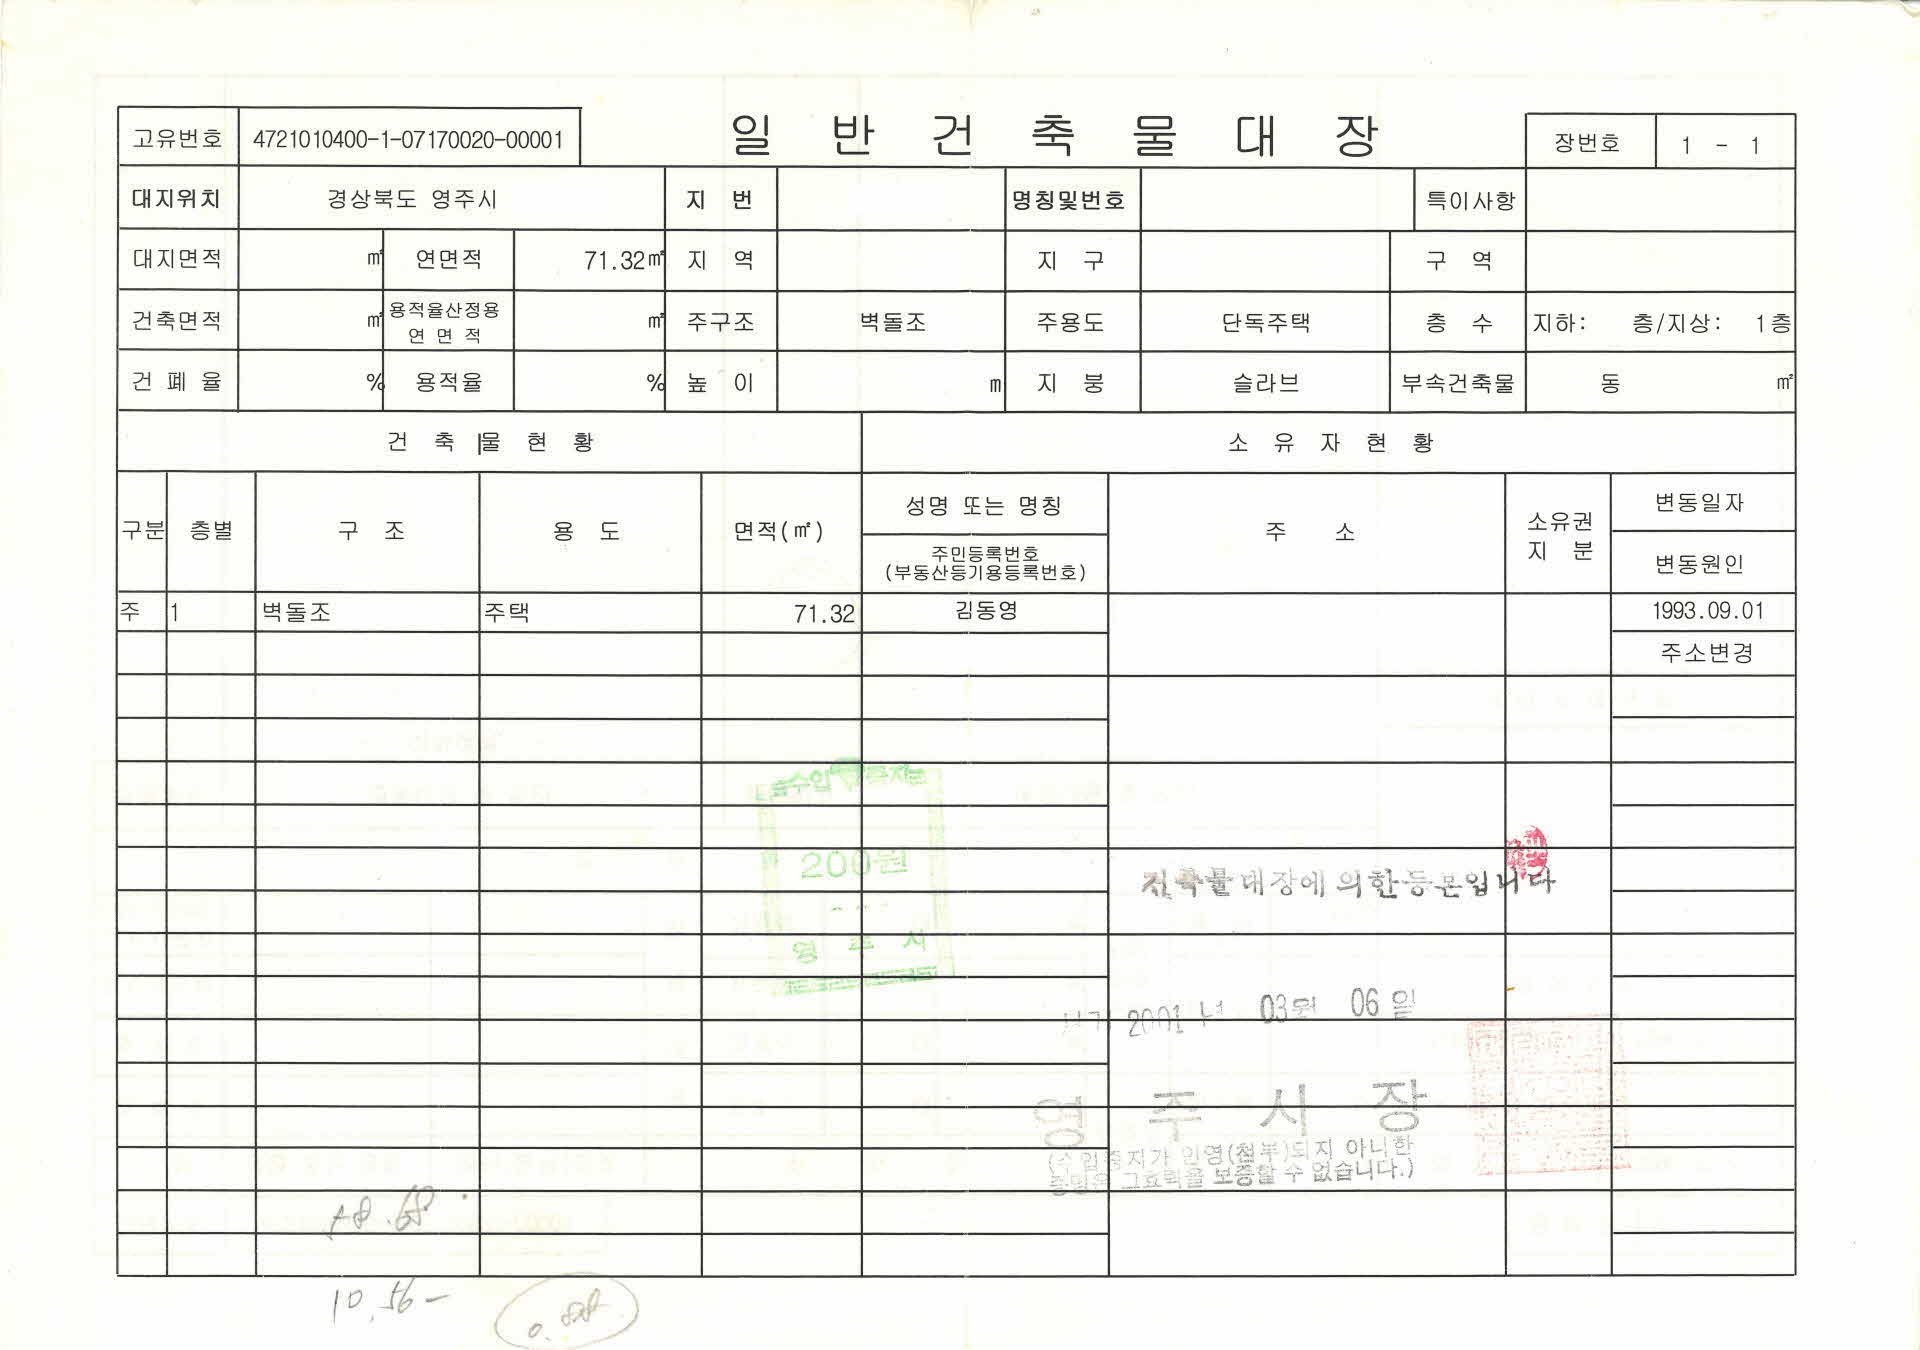 고유번호 4721010400-1-07170020-00001 일 반 건 축 물 대 장 장번호 1 - 1
대지위치 경상북도 영주시 지 번 명칭및번호 특이사항
대지면적 ㎡ 연면적 71.32㎡ 지 역 지 구 구 역
건축면적 ㎡ 용적율산정용 연 면 적 ㎡ 주구조 벽돌조 주용도 단독주택 층 수 지하: 층/지상: 1층
건 폐 율 % 용적율 % 높 이 m 지 붕 슬라브 부속건축물 동 ㎡
건 축 물 현 황 소 유 자 현 황
구분 층별 구 조 용 도 면적(㎡) 성명 또는 명칭 주 소 소유권 지 분 변동일자
주민등록번호 변동원인
(부동산등기용등록번호)
주 1 벽돌조 주택 71.32 김동영 1993.09.01
주소변경
200원
영 주 시
대장에 의한 등본입니다
2001 년 03월 06 일
영 주 시 장
(수입증지가 인영(첨부)되지 아니한
증명은 그효력을 보증할 수 없습니다.)
10.56-